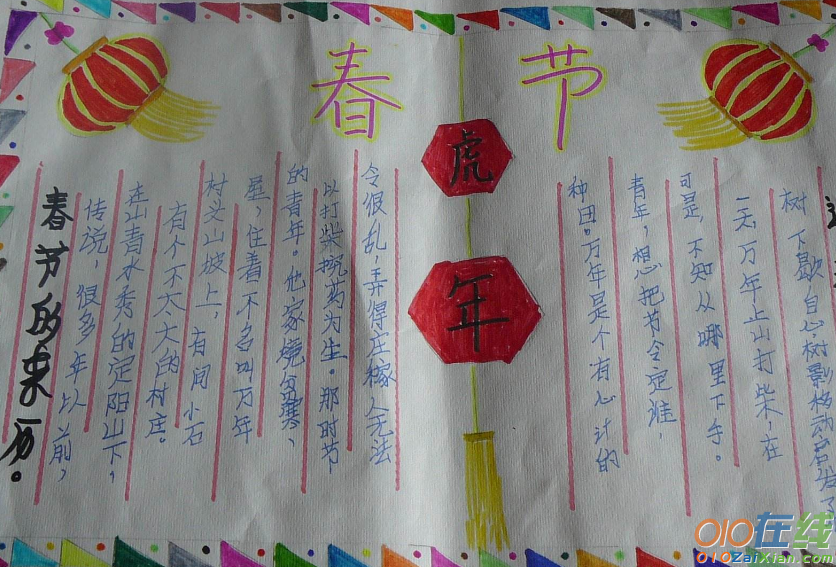 春节
虎
年
春节的来历。
传说，很多年以前，
在山青水秀的定阳山下，
有个不太大的村庄。
村头山坡上，有间小石
屋，住着不名叫万年
的青年。他家境贫寒，
以打柴挖药为生。那时节
令很乱，弄得庄稼人无法
种田。万年是个有心计的
青年，想把节令定准，
可是，不知从哪里下手。
一天，万年上山打柴，在
树下歇息，树影移动启发
010在线
010ZaiXian.com